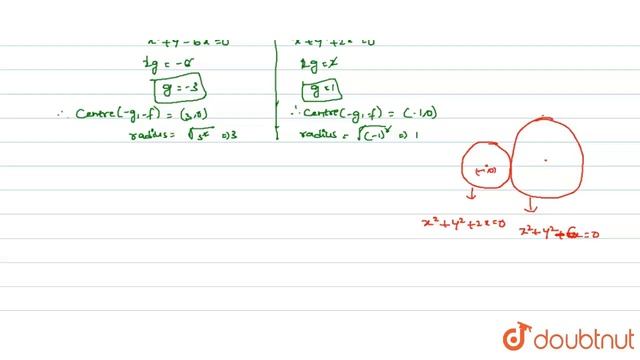 x² + y² - 6x = 0
2g = -6
g = -3
∴ Centre (-g, -f) = (3, 0)
radius = √3² ⇒ 3
x² + y² + 2x = 0
2g = 2
g = 1
∴ Centre (-g, -f) = (-1, 0)
radius = √(-1)² ⇒ 1
(-1, 0)
x² + y² + 2x = 0
x² + y² - 6x = 0
doubtnut